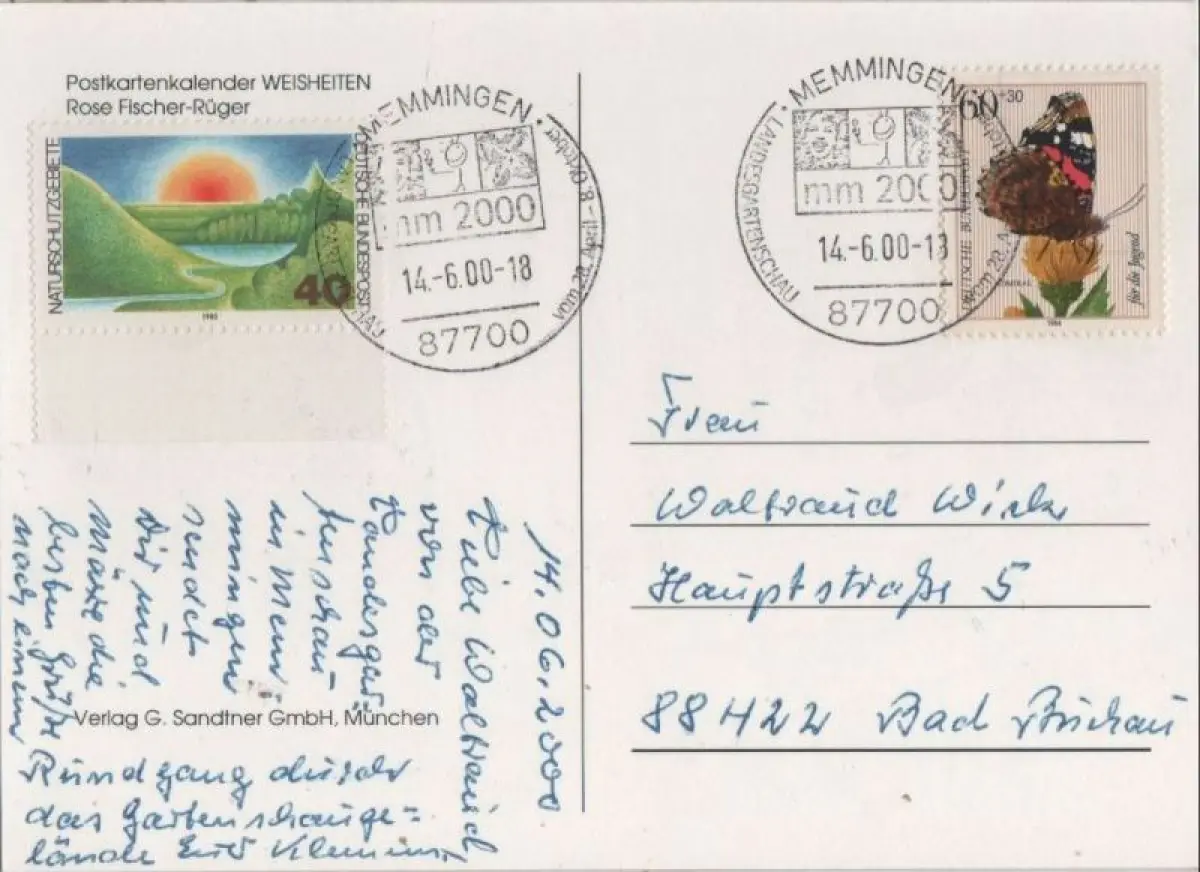 Postkartenkalender WEISHEITEN
Rose Fischer-Rüger
NATURSCHUTZGEBIETE
DEUTSCHE BUNDESPOST
40
1980
MEMMINGEN
mm 2000
14.-6.00-18
87700
vom 20. April - 8. Oktober
LANDESGARTENSCHAU
MEMMINGEN
LANDESGARTENSCHAU
mm 2000
14.-6.00-18
87700
vom 20. A
60 +30
DEUTSCHE BUNDESPOST
für die Jugend
1984
14.06.2000
Liebe Waltraud
von der
Landesgar
tenschau
in Mem
mingen
sendet
Dir und
Märie die
besten Grüße
nach einem
Rundgang durch
das Gartenschauge=
lände Euer Klemens
Verlag G. Sandtner GmbH, München
Frau
Waltraud
Hauptstraße 5
88422 Bad Buchau